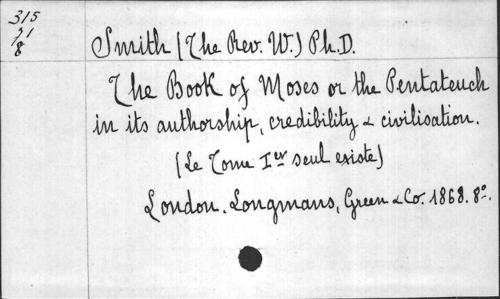 315
71
8
Smith (The Rev. W.) Ph.D.
The Book of Moses or the Pentateuch
in its authorship, credibility & civilisation.
(Le Tome Ier seul existe)
London. Longmans, Green & Co. 1868. 8º.